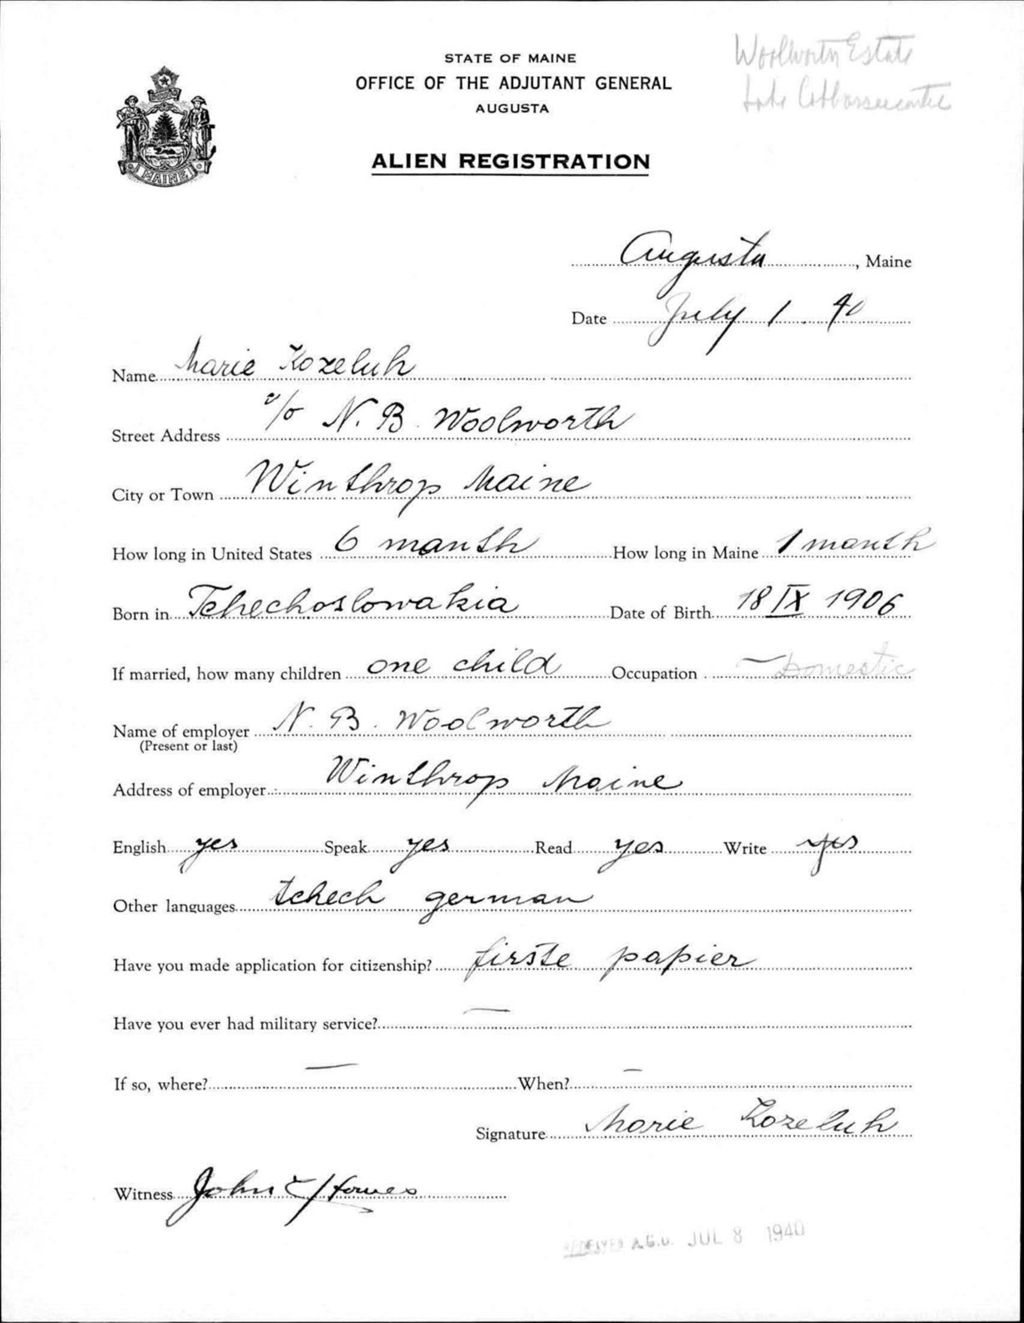 Woolworth Estate
Lake Cobbosseecontee
STATE OF MAINE
OFFICE OF THE ADJUTANT GENERAL
AUGUSTA
ALIEN REGISTRATION
MAINE
Augusta, Maine
Date July 1. 40
Name Marie Kozeluh
Street Address c/o N. B. Woolworth
City or Town Winthrop Maine
How long in United States 6 month How long in Maine 1 month
Born in Tchechoslowakia Date of Birth 18 IX 1906
If married, how many children one child Occupation — Domestic
Name of employer N. B. Woolworth
(Present or last)
Address of employer Winthrop Maine
English yes Speak yes Read yes Write yes
Other languages tchech german
Have you made application for citizenship? firste papier
Have you ever had military service? —
If so, where? — When? —
Signature Marie Kozeluh
Witness John E Howes
RECEIVED A.G.O. JUL 8 1940